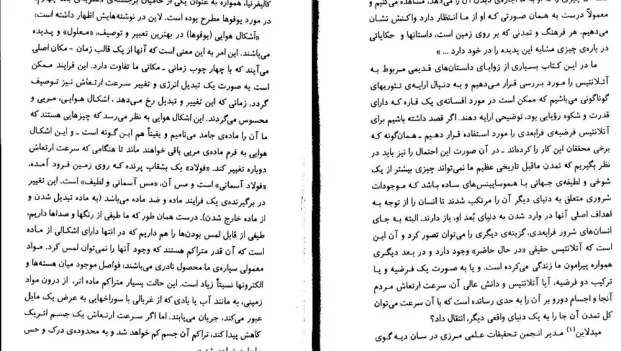 معمولاً درست به همان صورتی که او از ما انتظار دارد واکنش نشان
می‌دهیم. هر فرهنگ و تمدنی که بر روی زمین است، داستانها و حکایاتی
در باره‌ی چیزی مشابه این پدیده را در خود دارد ... »
ما در این کتاب بسیاری از زوایای داستان‌های قدیمی مربوط به
آتلانتیس را مورد بررسی قرار می‌دهیم و به دنبال ارایه‌ی تئوریهای
گوناگونی می‌باشیم که ممکن است در مورد افسانه‌ی یک قاره که دارای
قدرت و شکوه رؤیایی بود، توضیحی ارایه دهند. اگر قصد داشته باشیم برای
آتلانتیس فرضیه‌ی فرابعدی را مورد استفاده قرار دهیم ـ همان‌گونه که
برخی محققان این کار را کرده‌اند ـ در آن صورت این احتمال را نیز باید در
نظر بگیریم که تمدن ماقبل تاریخی عظیم ما نمی‌تواند چیزی بیشتر از یک
شوخی و لطیفه‌ی جهانی با هموساپینس‌های ساده باشد که موجودات
شروری متعلق به دنیای دیگر آن را مرتکب شدند تا انسان را از توجه به
اهداف اصلی آنها در وارد شدن به دنیای بُعد او، باز دارند. البته به جای
انسان‌های شرور فرابعدی، گزینه‌ی دیگری را می‌توان تصور کرد و آن این
است که آتلانتیس حقیقی «در حال حاضر» وجود دارد و در بعد دیگری
همواره پیرامون ما زندگی می‌کرده است. و یا به صورت یک فرضیه و یا
ترکیب دو فرضیه، آیا آتلانتیس و دانش عالی آن، سرعت ارتعاش مردم
آنجا و اجسام دورو بر آن را به حدی رسانده است که با آن سرعت می‌توان
کل تمدن آن جا را به یک دنیای واقعی دیگر، انتقال داد؟
میدلاین(۱) مدیر انجمن تحقیقات علمی مرزی در سان دیه گوی
کالیفرنیا، همواره به عنوان یکی از حامیان
در مورد یوفوها مطرح بوده است. لاین در نوشته‌هایش اظهار داشته است:
«اشکال هوایی (یوفوها) در بهترین تعبیر و توصیف، «معلول» و پدیده
می‌باشند. این امر به این معنی است که آنها از یک قالب زمان - مکان اصلی
می‌آیند که با چهار چوب زمانی ـ مکانی ما تفاوت دارد. این فرایند ممکن
است به صورت یک تبدیل انرژی و تغییر سرعت ارتعاش نیز توصیف
گردد. زمانی که این تغییر و تبدیل رخ می‌دهد، اشکال هوایی، مریی و
محسوس می‌گردند. این اشکال هوایی به نظر می‌رسد که چیزهایی هستند که
ما آن را ماده‌ی جامد می‌نامیم و یقیناً هم این گونه است ـ و این اشکال
هوایی به فرم ماده‌ی مریی باقی خواهند ماند تا هنگامی که سرعت ارتعاش
دوباره تغییر کند. «فولاد» یک بشقاب پرنده که روی زمین فرود آمده،
«فولاد آسمانی» است و مس آن، «مس آسمانی و لطیف» است. این تغییر
در برگیرنده‌ی یک فرایند ماده و ضد ماده می‌باشد (به ماده تبدیل شدن و
از ماده خارج شدن). درست همان طور که ما طیفی از رنگها و صداها داریم،
طیفی از قابل لمس بودن‌ها را هم داریم که در انتها دارای اشکالی از ماده
است که آن قدر متراکم هستند که وجود آنها را نمی‌توان لمس کرد. مواد
معمولی سیاره‌ی ما محصول نادری می‌باشند؛ فواصل موجود میان هسته‌ها و
الکترونها نسبتاً زیاد است. این حالت بسیار متراکم ماده اتر، از درون مواد
زمینی، به مانند آب یا بادی که از غربالی با سوراخهایی به عرض یک مایل
عبور می‌کند، جریان می‌یابند. اما اگر سرعت ارتعاش یک جسم اتریک
کاهش پیدا کند، تراکم آن جسم کم خواهد شد و به محدوده‌ی درک و حس